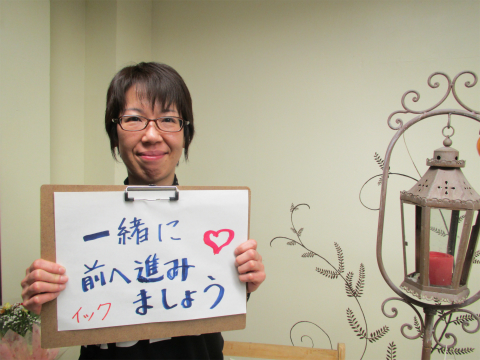 一緒に
前へ進み
ましょう
イック